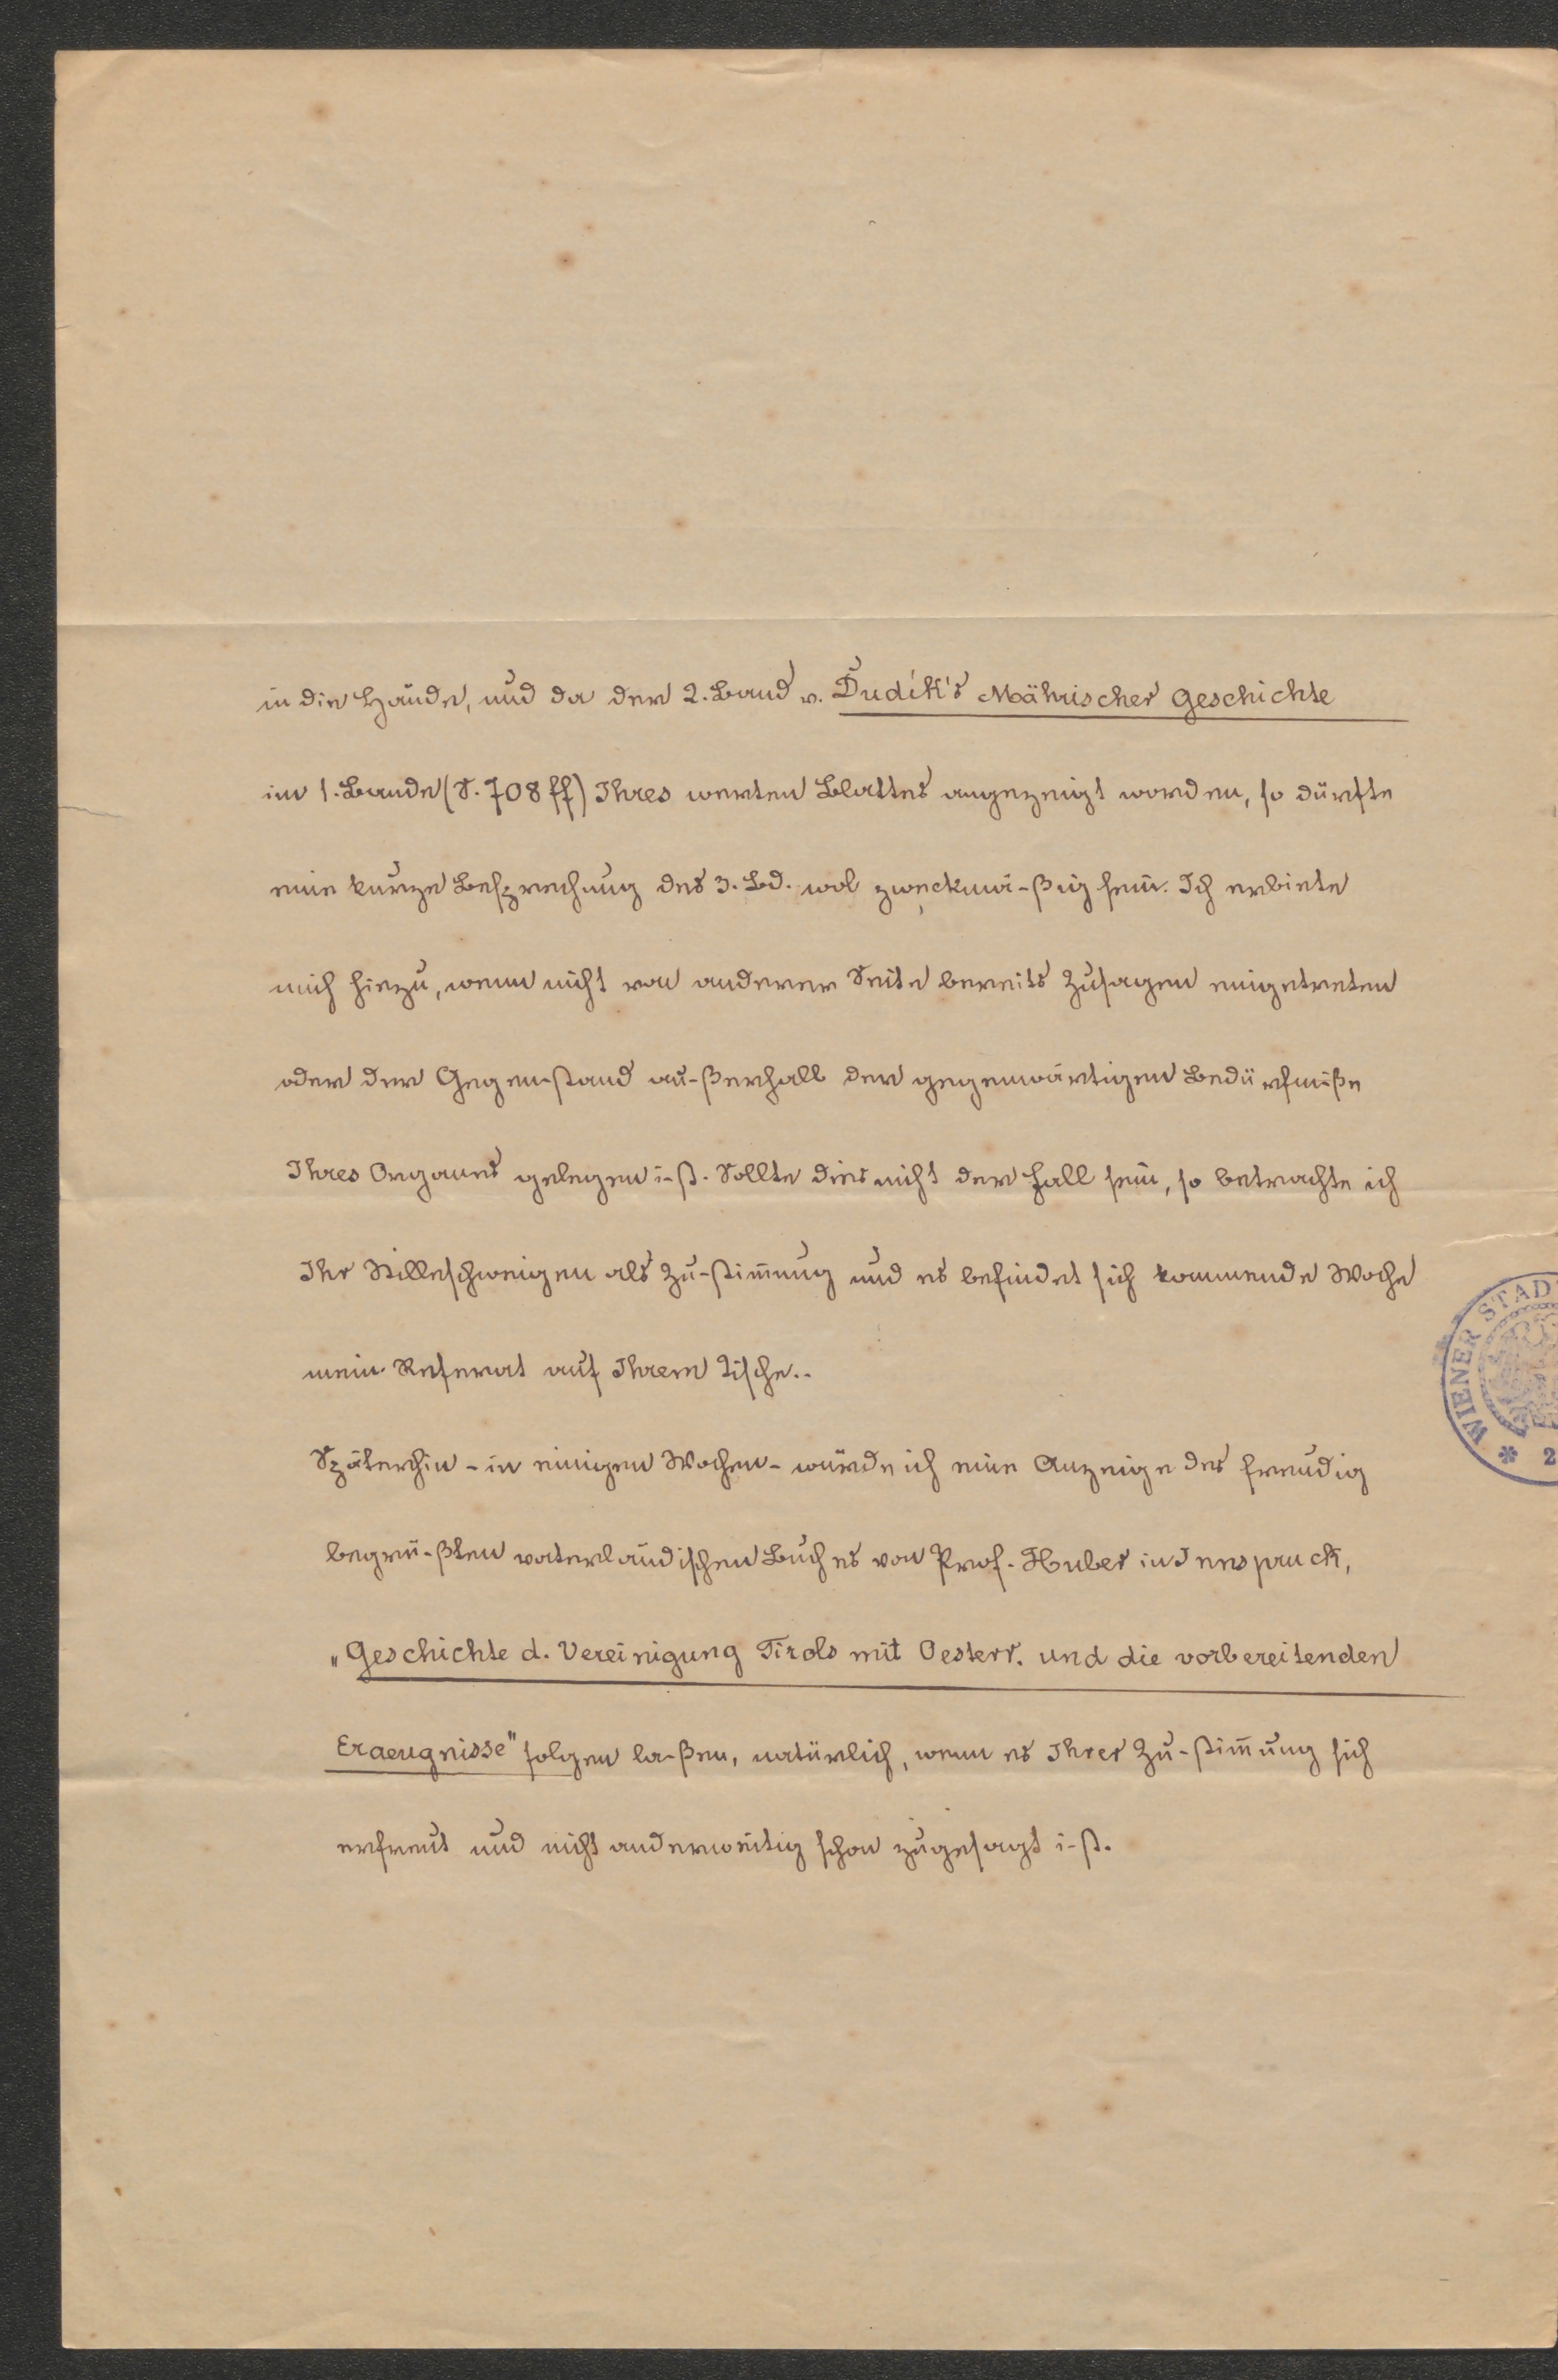 in die Hände, und da der 2. Band v. Dudík's Mährischer Geschichte
im 1. Bande (S. 708 ff) Ihres werten Blattes angezeigt worden, so dürfte
eine kurze Besprechung des 3. Bd. wol zweckmäßig sein. Ich erbiete
mich hiezu, wenn nicht von anderer Seite bereits Zusagen eingetreten
oder der Gegenstand außerhalb der gegenwärtigen Bedürfniße
Ihres Organes gelegen ist. Sollte dies nicht der Fall sein, so betrachte ich
Ihr Stilleschweigen als Zustim̄ung und es befindet sich kommende Woche
mein Referat auf Ihrem Tische..
Späterhin - in einigen Wochen - würde ich eine Anzeige des freudig
begrüßten vaterländischen Buches von Prof. Huber in Innspruck,
„Geschichte d. Vereinigung Tirols mit Oesterr. und die vorbereitenden
Eraeugnisse" folgen laßen, natürlich, wenn es Ihrer Zustim̄ung sich
erfreut und nicht anderweitig schon zugesagt ist.
WIENER STAD
* 2